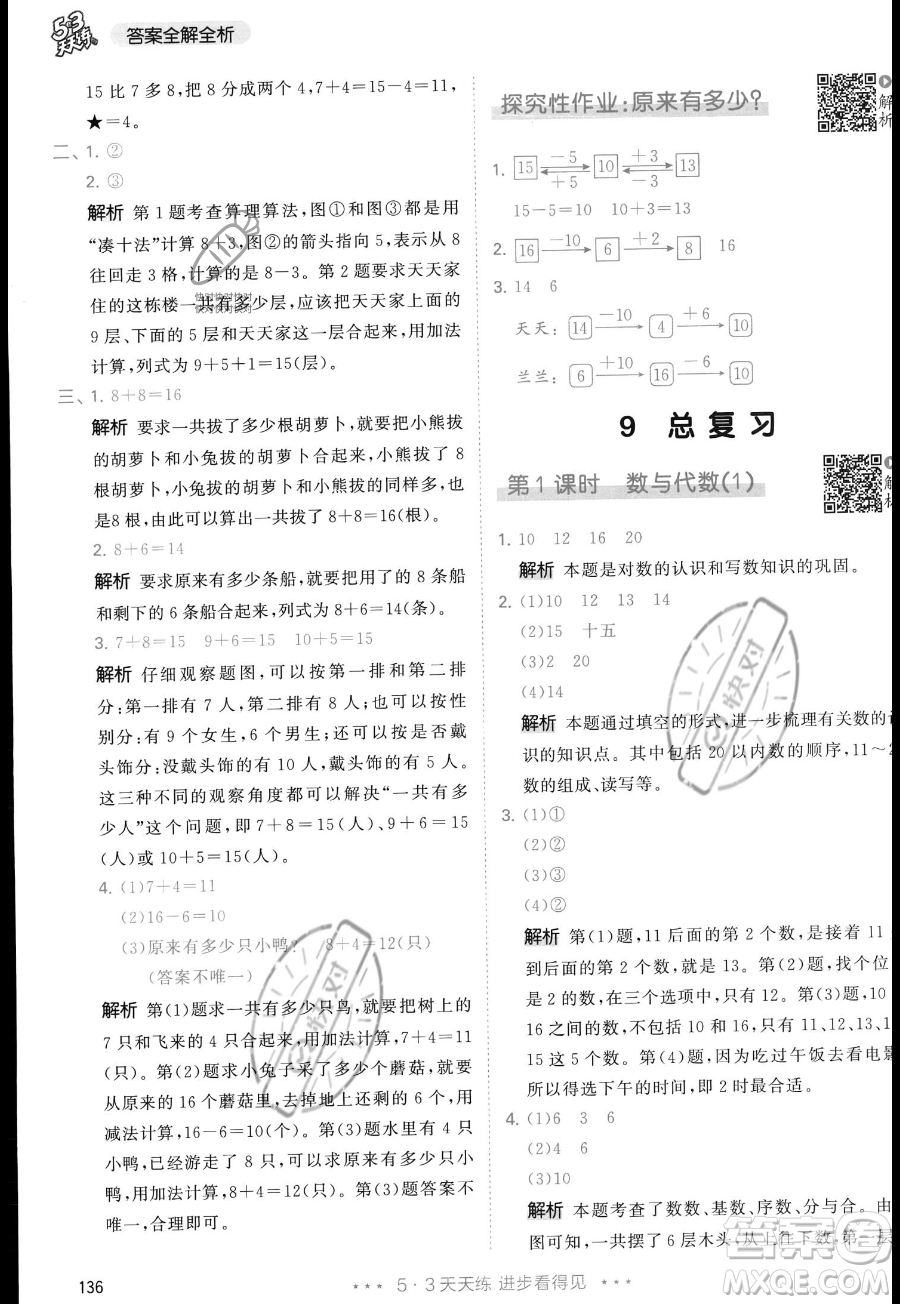 5·3
天天练
答案全解全析
15比7多8,把8分成两个4,7+4=15-4=11,
★=4。
二、1. ②
2. ③
解析 第1题考查算理算法,图①和图③都是用
“凑十法”计算8+3,图②的箭头指向5,表示从8
往回走3格,计算的是8-3。第2题要求天天家
住的这栋楼一共有多少层,应该把天天家上面的
9层、下面的5层和天天家这一层合起来,用加法
计算,列式为9+5+1=15(层)。
三、1. 8+8=16
解析 要求一共拔了多少根胡萝卜,就要把小熊拔
的胡萝卜和小兔拔的胡萝卜合起来,用加法计算。
小熊拔的胡萝卜和小兔拔的胡萝卜同样多,也
是8根,由此可以算出一共拔了8+8=16(根)。
2. 8+6=14
解析 要求原来有多少条船,就要把租了的8条船
和剩下的6条船合起来,列式为8+6=14(条)。
3. 7+8=15 9+6=15 10+5=15
解析 仔细观察题图,可以按第一排和第二排
分:第一排有7人,第二排有8人;也可以按性
别分:有9个女生,6个男生;还可以按是否戴
头饰分:没戴头饰的有10人,戴头饰的有5人。
这三种不同的观察角度都可以解决“一共有多
少人”这个问题,即7+8=15(人)或9+6=15
(人)或10+5=15(人)。
4. (1)7+4=11
(2)16-6=10
(3)原来有多少只小鸭? 8+4=12(只)
(答案不唯一)
解析 第(1)题求一共有多少只鸟,就要把树上的
7只和飞来的4只合起来,用加法计算,7+4=11
(只)。第(2)题求小兔子采了多少个蘑菇,就要
从原来的16个蘑菇里,去掉地上还剩的6个,用
减法计算,16-6=10(个)。第(3)题水里有4只
小鸭,已经游走了8只,可以求原来有多少只小
鸭,用加法计算,8+4=12(只)。第(3)题答案不
唯一,合理即可。
136
探究性作业:原来有多少?
解
析
1. 15 -5 +5 10 +3 -3 13
15-5=10 10+3=13
2. 16 -10 6 +2 8 16
3. 14 6
天天: 14 -10 4 +6 10
兰兰: 6 +10 16 -6 10
9 总复习
第1课时 数与代数(1)
解
析
1. 10 12 16 20
解析 本题是对数的认识和写数知识的巩固。
2. (1)10 12 13 14
(2)15 十五
(3)2 20
(4)14
解析 本题通过填空的形式,进一步梳理有关数的认
识的知识点。其中包括20以内数的顺序,11~2
数的组成、读写等。
3. (1)①
(2)②
(3)①
(4)②
解析 第(1)题,11后面的第2个数,就是从11
到后面的第2个数,就是13。第(2)题,找个位
是2的数,在三个选项中,只有12。第(3)题,10
16之间的数,不包括10和16,应该有11、12、
15这5个数。第(4)题,因为吃过午饭去看电影
所以得选下午的时间,即2时最合适。
4. (1)6 3 6
(2)4 6
(3)10
解析 本题考查了数数、基数、序数、分与合。由
图可知,一共有6层木头,从上往下数,第一层
5·3天天练 进步看得见
快对
快对
答案圈
MXQE.COM